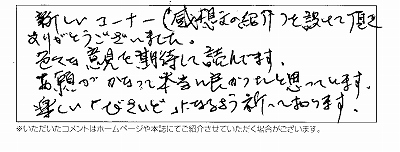 新しいコーナー(感想文の紹介)を設けて頂き
ありがとうございました。
色々な意見を期待して読んでます。
お願いがかなって本当に良かったと思っています。
楽しい「びさいど」になるよう祈って おります。
※いただいたコメントはホームページや本誌にてご紹介させていただく場合がございます。